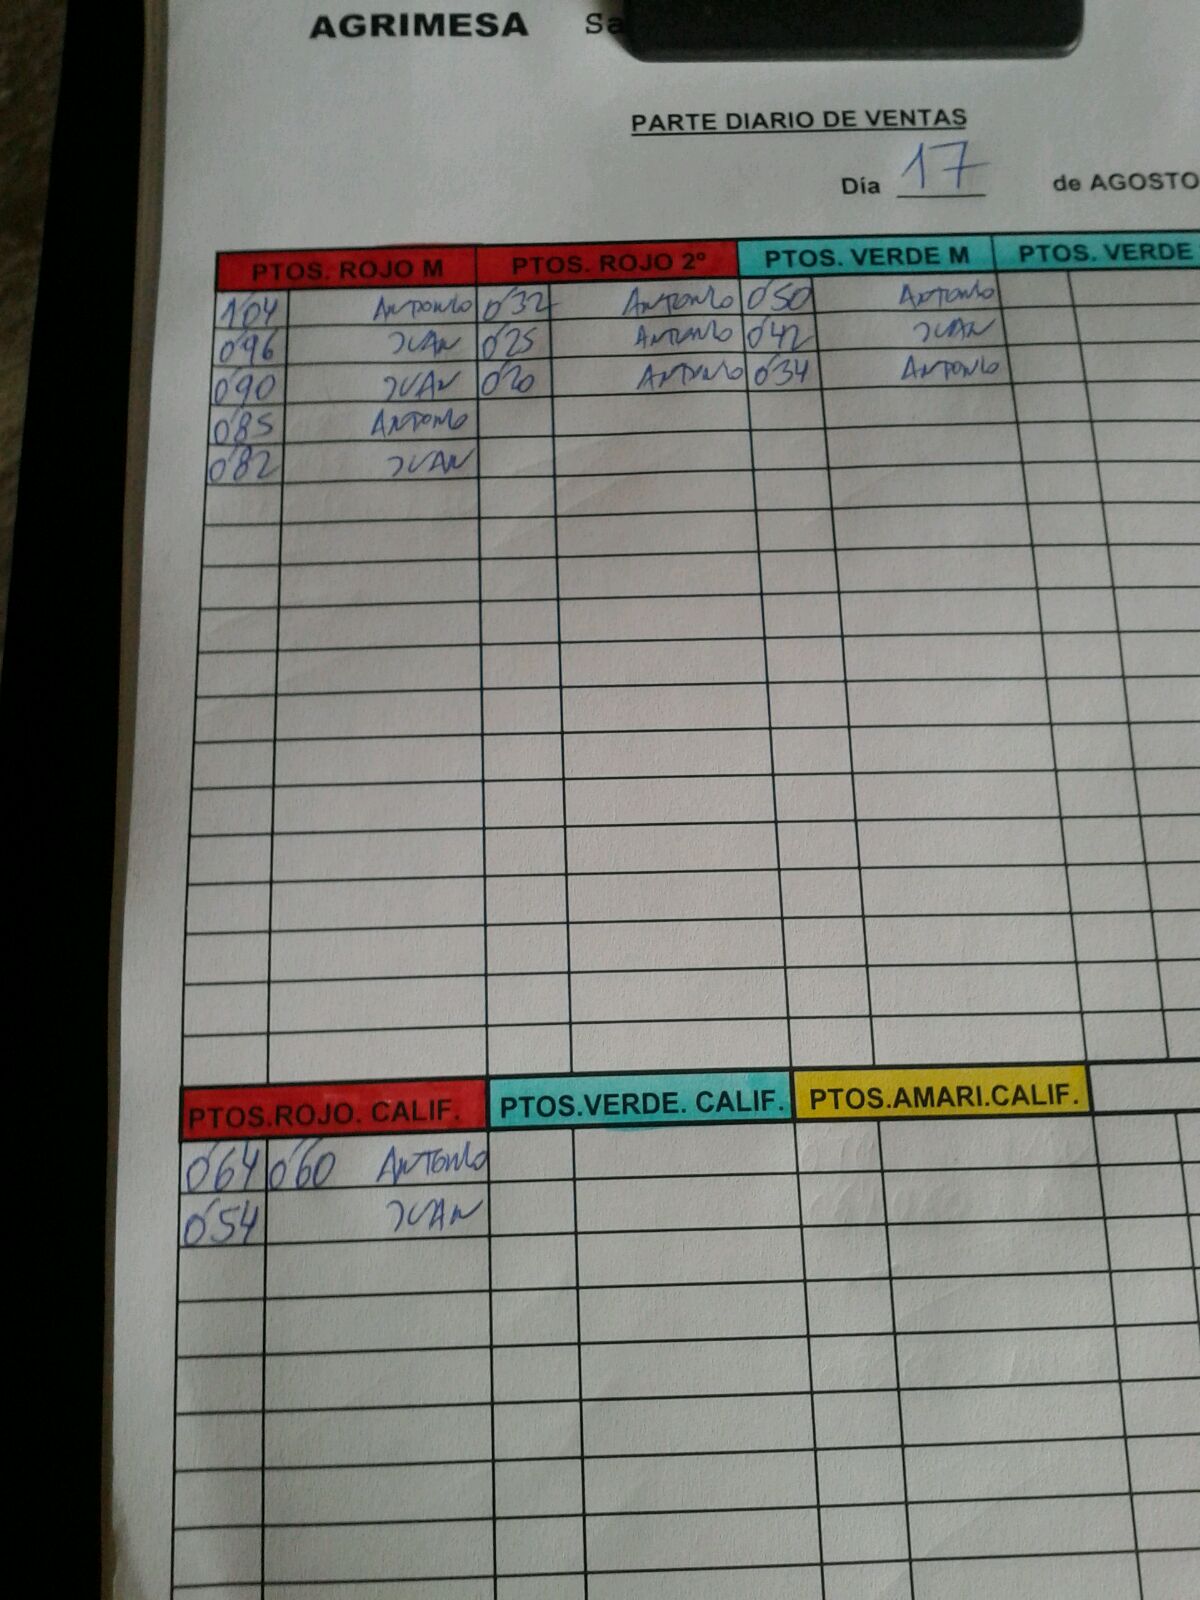 AGRIMESA Sa
PARTE DIARIO DE VENTAS
Día 17 de AGOSTO
PTOS. ROJO M PTOS. ROJO 2º PTOS. VERDE M PTOS. VERDE
1'04 ANTONIO 0'32 ANTONIO 0'50 ANTONIO
0'96 JUAN 0'25 ANTONIO 0'42 JUAN
0'90 JUAN 0'20 ANTONIO 0'34 ANTONIO
0'85 ANTONIO
0'82 JUAN
PTOS.ROJO. CALIF. PTOS.VERDE. CALIF. PTOS.AMARI.CALIF.
0'64 0'60 ANTONIO
0'54 JUAN